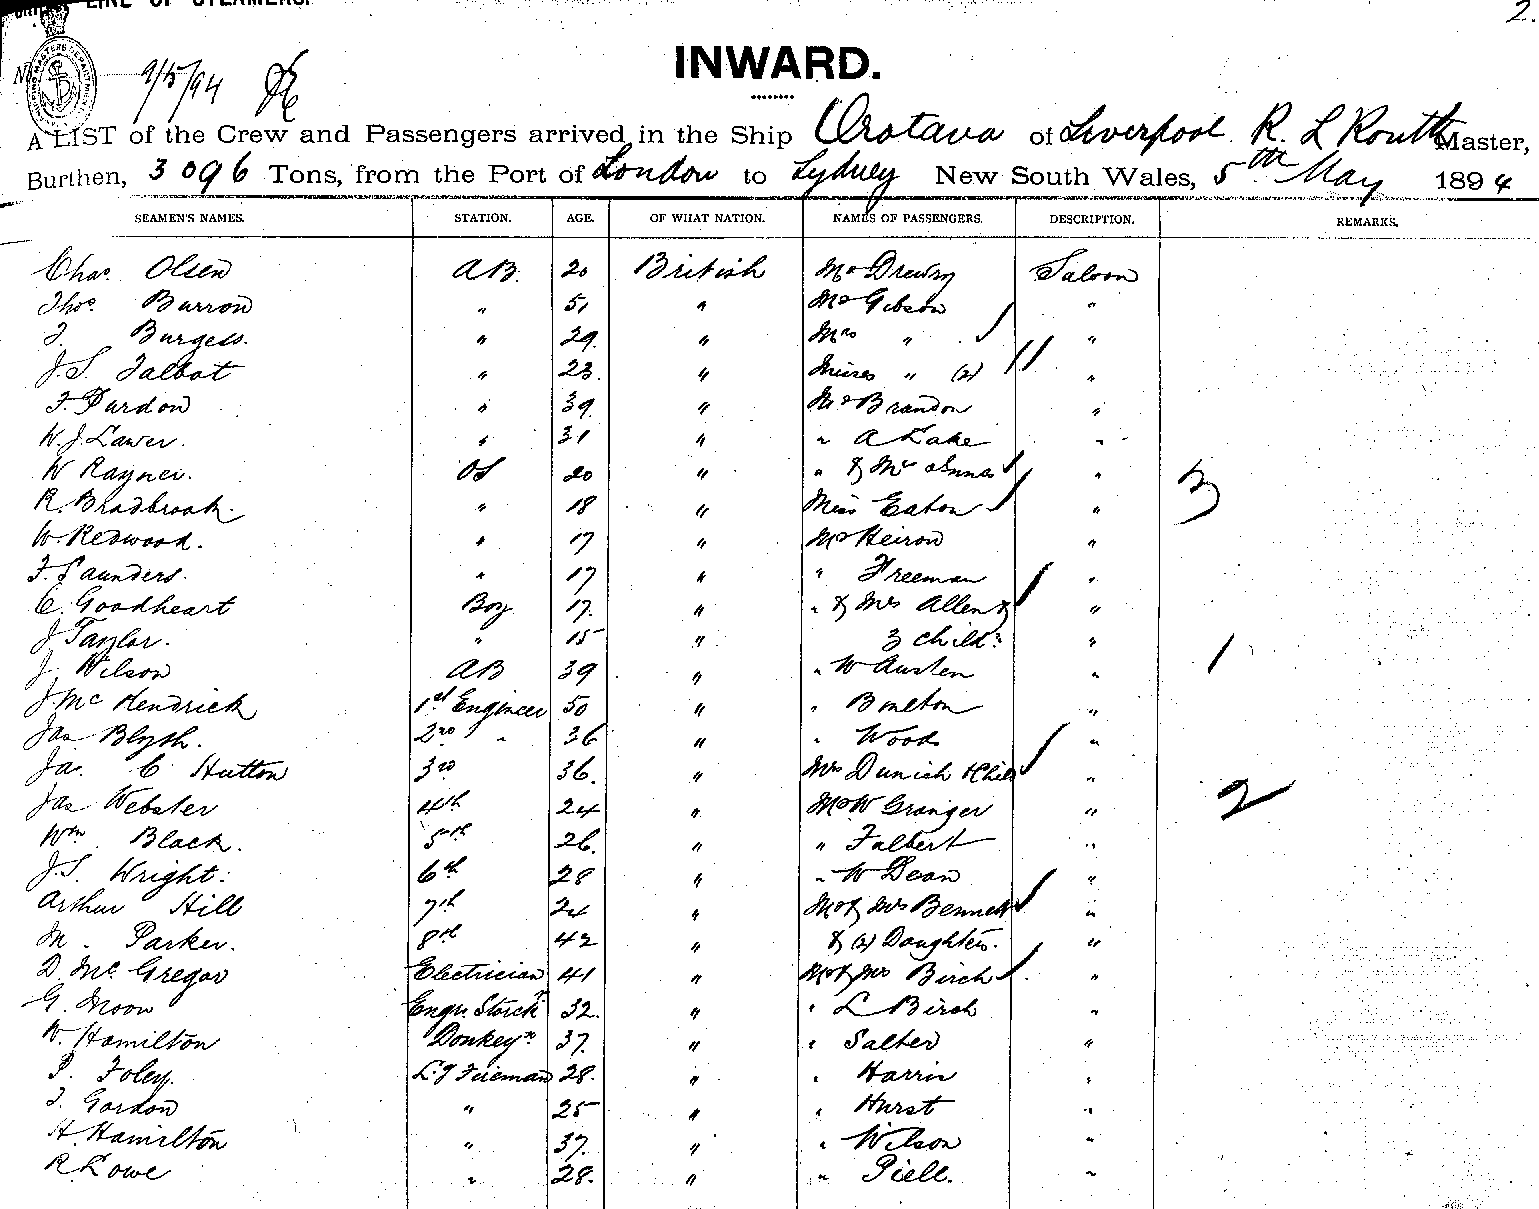 LINE OF STEAMERS.
2.
INWARD.
9/5/94
A LIST of the Crew and Passengers arrived in the Ship Orotava of Liverpool R. L Routh Master,
Burthen, 3096 Tons, from the Port of London to Sydney New South Wales, 5th May 1894
SEAMEN'S NAMES. STATION. AGE. OF WHAT NATION. NAMES OF PASSENGERS. DESCRIPTION. REMARKS.
Chas. Olsen AB. 20 British Mr Drewry Saloon
Thos. Burrow " 51 " Mr Gibson "
T. Burgess. " 29. " Mrs " "
J.S. Talbot " 23. " Misses " (2) "
F. Purdon " 39. " Mr Brandon "
W. J. Lawer. " 31 " " A Lake "
W Rayner. OS 20 " " & Mrs "
R. Bradbrook. " 18 " Miss Eaton " 3
W. Redwood. " 17 " Mr Heiron "
F. Saunders. " 17 " " Freeman "
C. Goodheart Boy 17. " " & Mrs Allen & "
J Taylor. " 15 " 3 child: "
J, Wilson AB 39 " " W Austen " 1
J. Mc Hendrick 1st Engineer 50 " " Boulton "
Jas Blyth. 2nd " 36 " " Woods "
Ja. C Hutton 3rd 36. " Mrs Dunish & Child "
Jas Webster 4th 24 " Mr W Granger " 2
Wm Black. 5th 26. " " Falbert "
J.S. Wright. 6th 28 " " W Dean "
Arthur Hill 7th 24 " Mr & Mrs Bennett "
M. Parker. 8th 42 " & (2) Daughters. "
D. Mc Gregor Electrician 41 " Mr & Mrs Birch "
G. Moon Engrs Storekr 32. " " L Birch "
W. Hamilton Donkeyn 37. " " Salter "
P. Foley. Lg Fireman 28. " " Harris "
T. Gordon " 25 " " Hurst "
H. Hamilton " 37. " " Wilson "
R. Lowe " 28. " " Piell. "